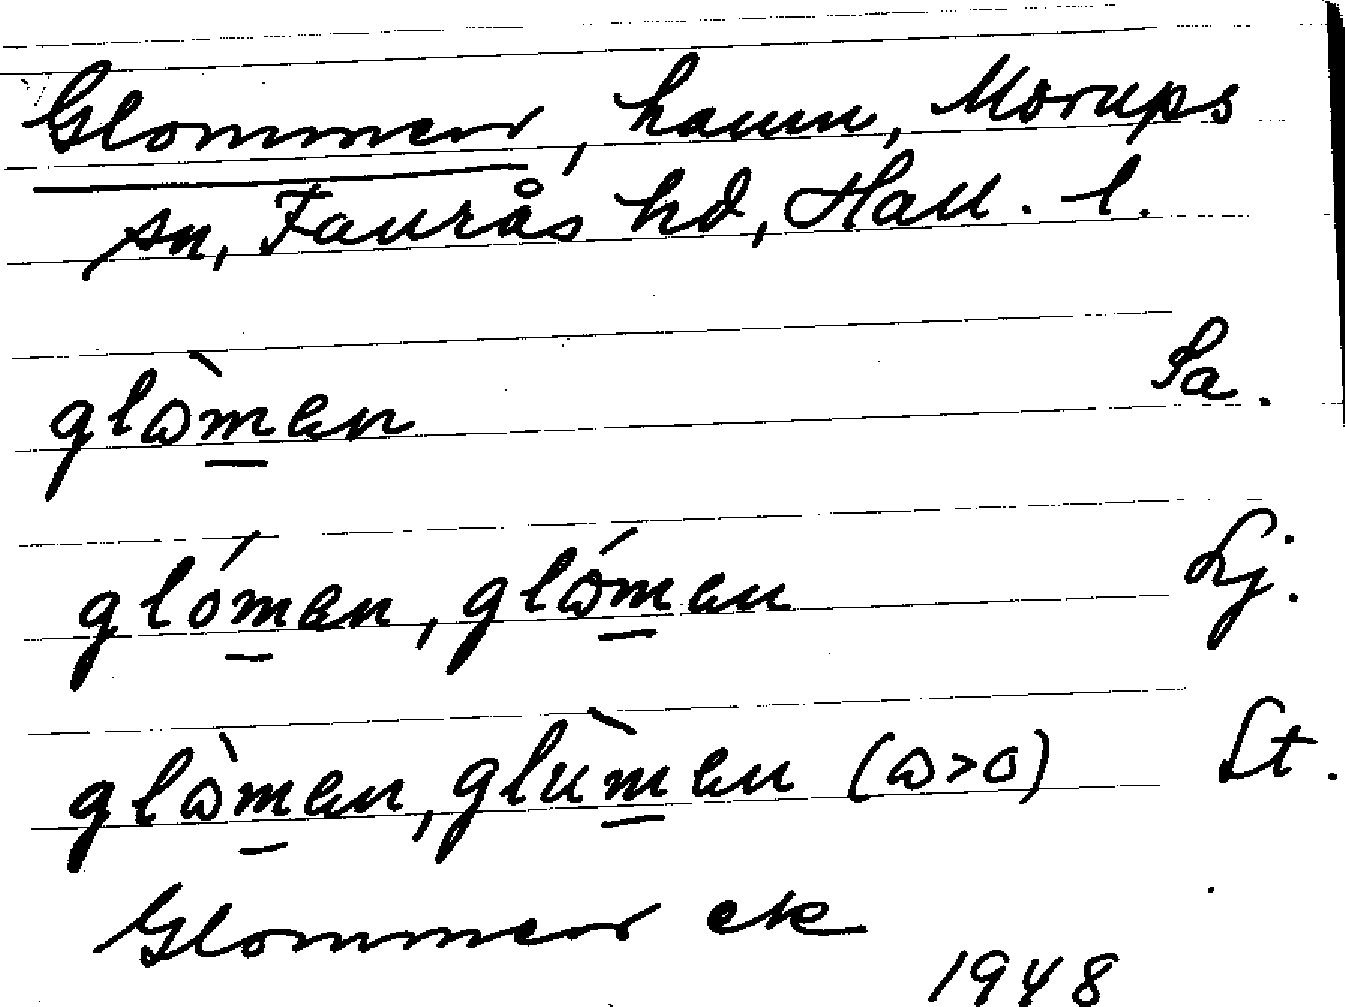 Glommen, hamn, Morups
sn, Faurås hd, Hall. l.
glɷ̀m̲en Sa.
glóm̲en, glɷ́m̲en Lj.
glɷ̀m̲en, glùm̲en (ɷ>o) Lt.
Glommen ek
1948